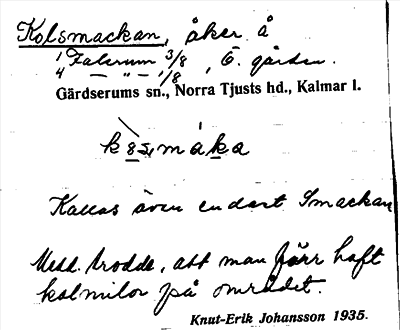 Kolsmackan, åker å
1 Falerum 3/8
4 — " — 1/8, Ö. gården.
Gärdserums sn., Norra Tjusts hd., Kalmar l.
Kallas även endast Smackan
Medd. trodde, att man förr haft
kolmilor på området.
Knut-Erik Johansson 1935.